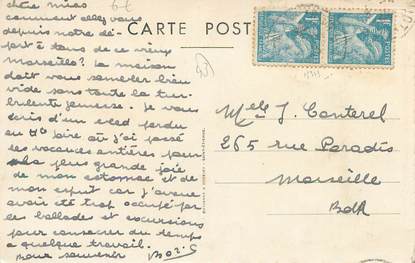 chère miss
comment allez vous
depuis notre dé-
part à tous de ce vieux
Marseille? La maison
doit vous sembler bien
vide sans toute la tur-
bulente jeunesse. Je vous
écris d'un bled perdu
où j'ai passé
les vacances entières pour
la plus grande joie
de mon estomac et de
mon esprit car j'avoue
avoir été trop occupé par
les ballades et excursions
pour consacrer du temps
a quelque travail.
Bons souvenirs
CARTE POST
Melle J. Conterel
265 rue Paradis
Marseille
BdR